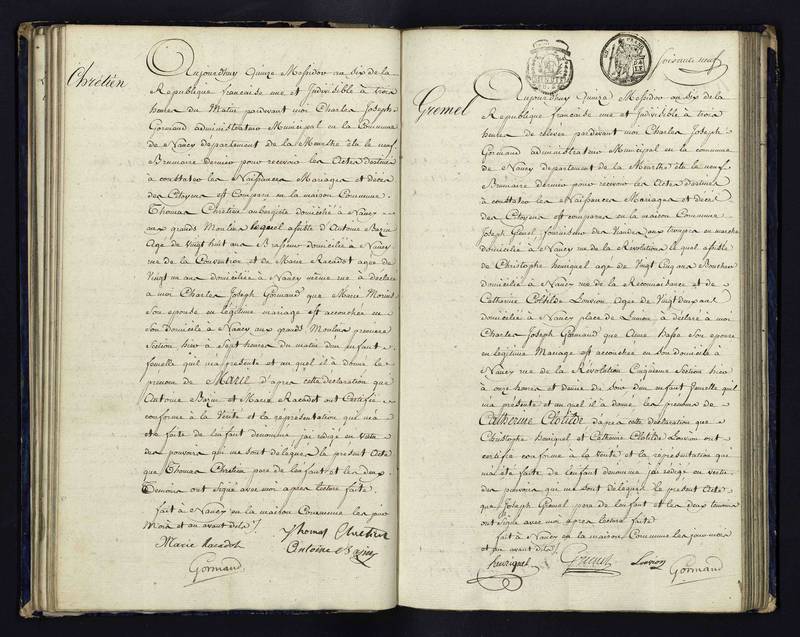 Chrétien
Aujourdhuy Quinze Messidor an six de la
Republique francaise une et Indivisible à trois
heures du Matin pardevant moi Charles Joseph
Gormand administrateur Municipal en la Commune
de Nancy departement de la Meurthe élu le neuf
Brumaire dernier pour recevoir les Actes destinés
a constater les Naissances Mariages et décès
des Citoyens est Comparu en la maison Commune
Thomas Chrétien aubergiste domicilié à Nancy
aux grands Moulins lequel assisté d'Antoine Bazin
Age de Vingt huit ans Brasseur domicilié à Nancy
rue de la Convention et de Marie Racadot agée de
Vingt un ans domiciliée à Nancy même rue à déclaré
a moi Charles Joseph Gormand que Marie
Son epouse en légitime mariage est accouchée en
Son domicile à Nancy aux grands Moulins premiere
Section hier à Sept heures du matin d'un enfant
femelle qu'il m'a présenté et au quel il à donné le
prenom de Marie d'apres cette declaration que
Antoine Bazin et Marie Racadot ont Certifié
conforme à la Verité et la représentation qui m'a
été faite de l'enfant denommé j'ai rédigé en Vertu
des pouvoirs qui me sont délégués le présent Acte
que Thomas Chrétien pere de l'enfant et les deux
Temoins ont Signé avec moi apres lecture faite.
fait à Nancy en la maison Commune les jour
Mois et an avant dits
Marie Racadot Thomas Chretien
Antoine Bazin
Gormand
Soixante neuf
Gremel
Aujourdhuy Quinze Messidor an six de la
Republique francaise une et Indivisible à trois
heures de relevée pardevant moi Charles Joseph
Gormand administrateur Municipal en la commune
de Nancy departement de la Meurthe élu le neuf
Brumaire dernier pour recevoir les Actes destinés
a constater les Naissances Mariages et décès
des Citoyens est comparu en la maison Commune
Joseph Gremel fournisseur des Viandes aux troupes en marche
domicilié à Nancy rue de la Révolution le quel assisté
de Christophe henriquel agé de Vingt Cinq ans Boucher
domicilié à Nancy rue de la Reconnaissance et de
Catherine Clotilde Louvion age de Vingt deux ans
domiciliée à Nancy place de à déclaré à moi
Charles Joseph Gormand que Anne Son epouse
en legitime Mariage est accouchée en son domicile à
Nancy rue de la Révolution Cinquieme Section hier
à onze heures et demie du Soir d'un enfant femelle qu'il
m'a présenté et au quel il à donné les prénoms de
Catherine Clotilde d'apres cette declaration que
Christophe henriquel et Catherine Clotilde Louvion ont
certifié conforme à la Verité et la réprésentation qui
m'a été faite de l'enfant denommé j'ai rédigé en vertu
des pouvoirs qui me sont délégués le présent Acte
que Joseph Gremel pere de l'enfant et les deux temoins
ont signé avec moi apres lecture faite
fait à Nancy en la maison Commune les jour mois
et an avant dits
henriquel Gremel Louvion Gormand